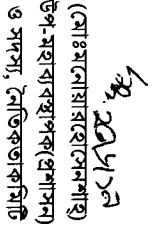 (মোঃ মনোয়ার হোসেন শাহ)
উপ-মহাব্যবস্থাপক(প্রশাসন)
ও সদস্য, নৈতিকতা কমিটি